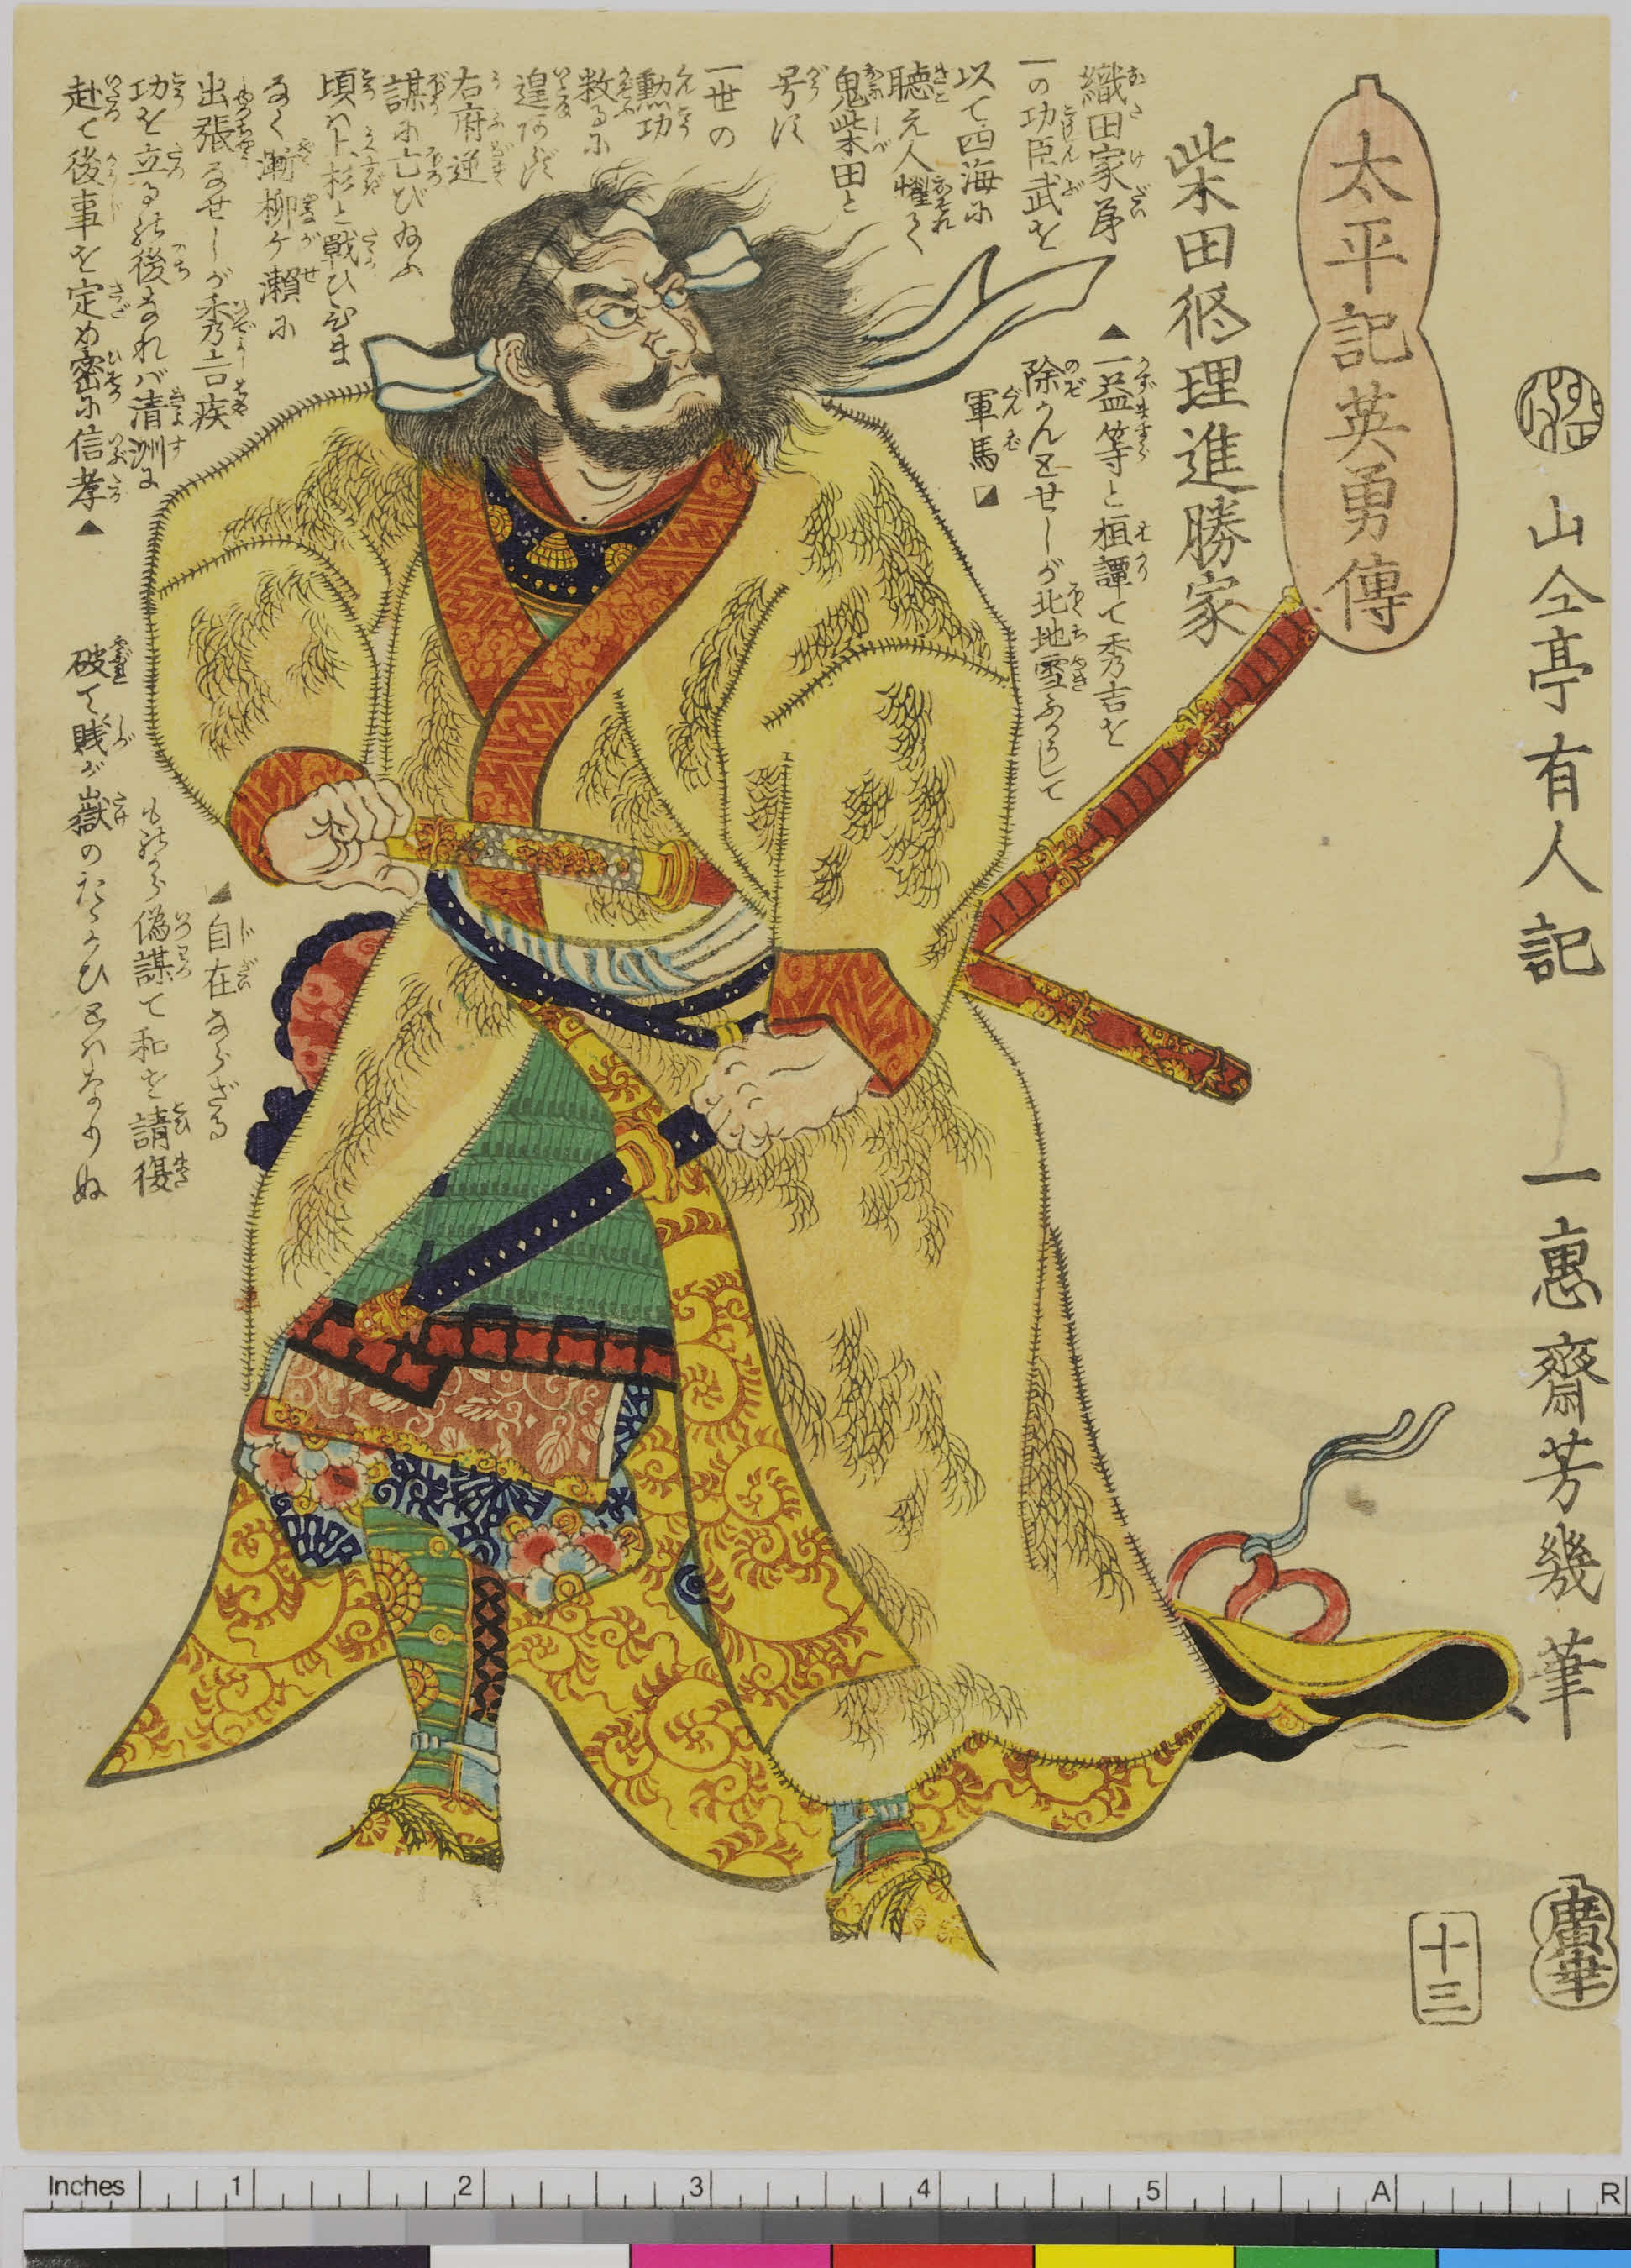 太平記英勇傳
柴田修理進勝家
織田家第
一の功臣武を
以て四海に
聴え人懼て
鬼柴田と
号す
一世の
勲功
数るに
遑あらず
右府逆
謀に亡び給ふ
頃は上杉と戦ひひま
なく漸柳ケ瀬に
出張なせしが秀吉疾
功を立る後なれバ清洲に
赴て後事を定め密に信孝▲
▲一益等と相譚て秀吉を
除かんとせしが北地雪ふかうして
軍馬
自在ならざる
偽謀て和を請復
破て賤が嶽のたゝかひとはなりぬ
山々亭有人記
一惠齋芳幾筆
廣
十三
Inches 1 2 3 4 5 A R